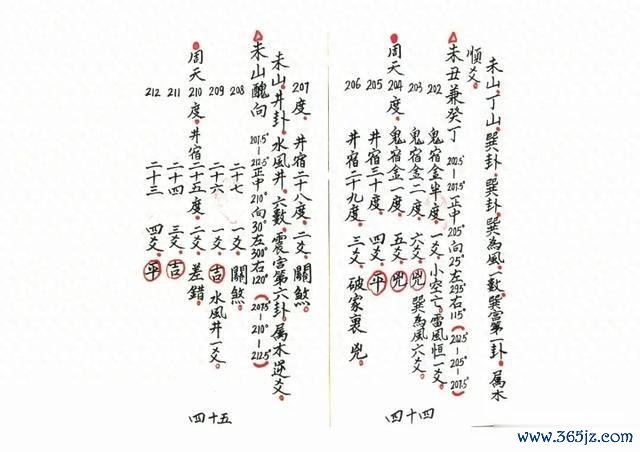 未山丁山。巽卦。巽卦。巽為風。一數。巽宮第一卦。属木
順爻。
未丑兼癸丁 202.5°－207.5°正中205°向25°左295°右115°（202.5°－205°－207.5°）
202 鬼宿金半度。一爻。小空亡。雷風恒一爻。
203 鬼宿金二度。六爻。凶 巽為風六爻。
周天204度。鬼宿金一度。五爻。凶
205 井宿三十度。四爻。平
206 井宿二十九度。三爻。破家裏凶
四十四
207度。井宿二十八度。二爻。關煞。
未山。井卦。水風井。六數。震宮第六卦。属木逆爻。
未山醜向 207.5°－212.5°正中210°向30°左300°右120°（207.5°－210°－212.5°）
208 二十七 一爻。關煞
209 二十六 一爻。吉 水風井一爻。
周天210度。井宿二十五度。二爻。差錯。
211 二十四 三爻。吉
212 二十三 四爻。平
四十五
www.365jz.com